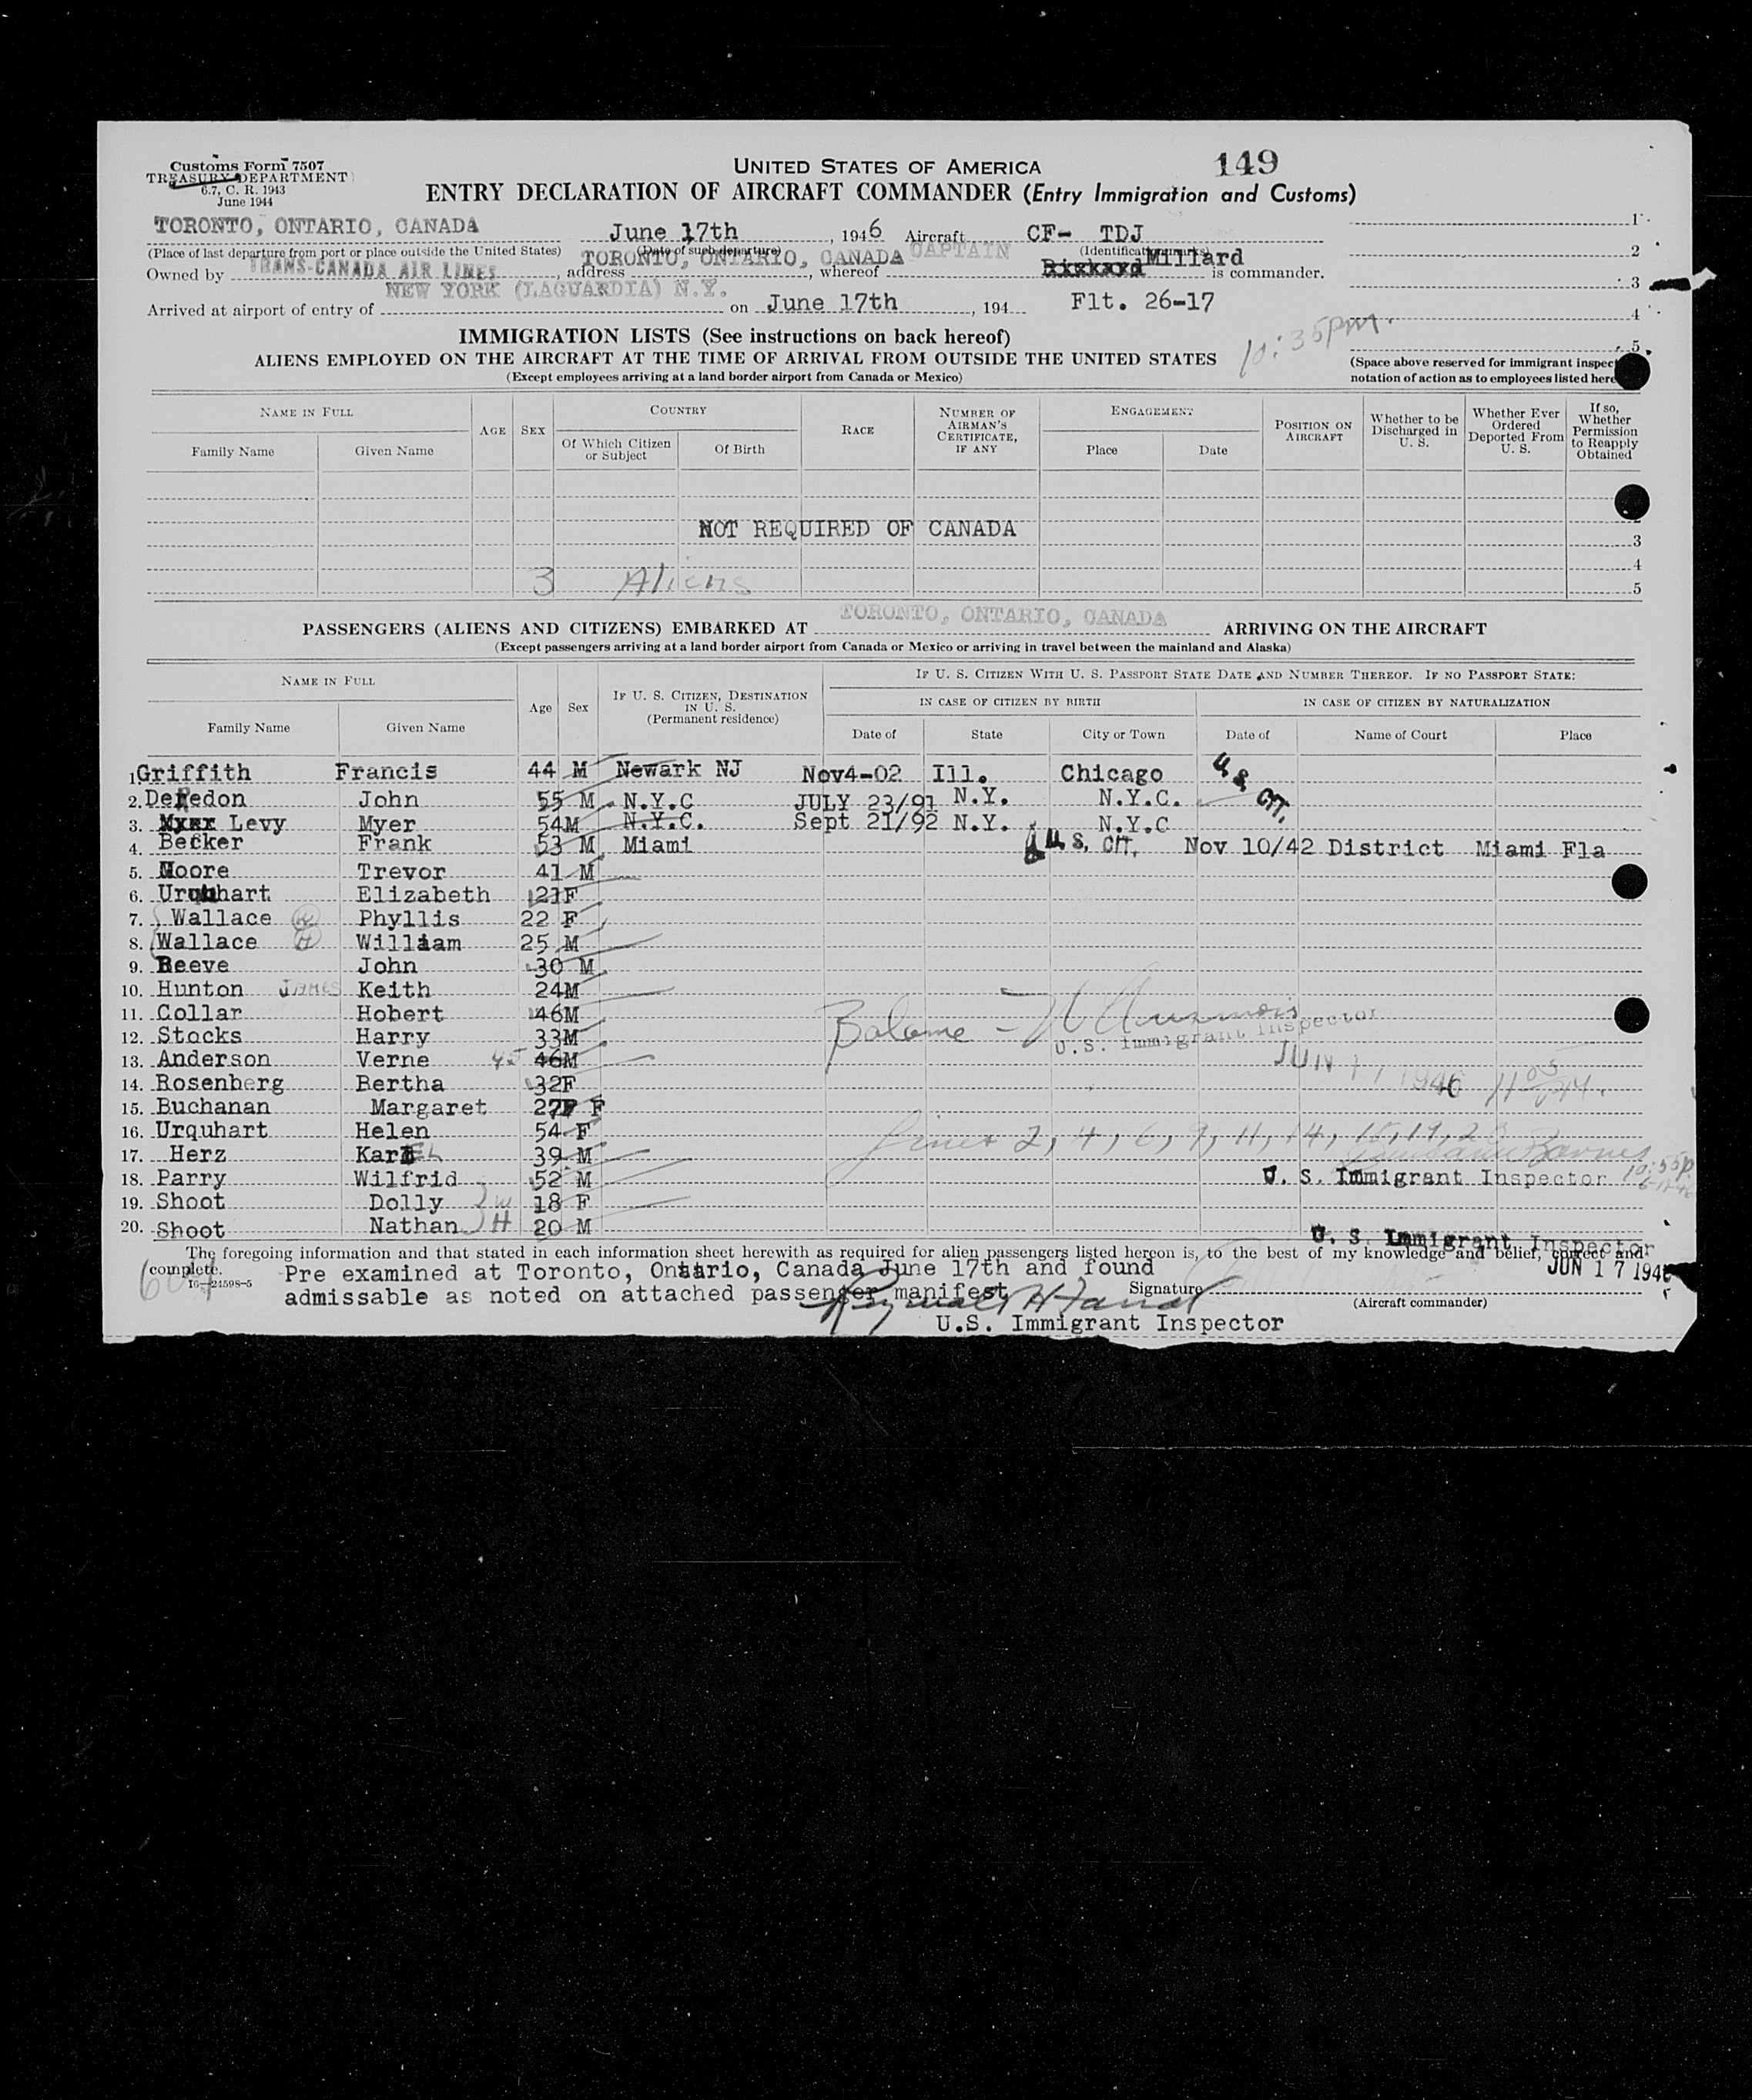 Customs Form 7507
TREASURY DEPARTMENT
6.7, C. R. 1943
June 1944
UNITED STATES OF AMERICA
149
ENTRY DECLARATION OF AIRCRAFT COMMANDER (Entry Immigration and Customs)
TORONTO, ONTARIO, CANADA June 17th, 1946 Aircraft CF- TDJ
(Place of last departure from port or place outside the United States) (Date of such departure) (Identification marks)
Owned by TRANS-CANADA AIR LINES, address TORONTO, ONTARIO, CANADA, whereof CAPTAIN Millard is commander.
Arrived at airport of entry of NEW YORK (LAGUARDIA) N.Y. on June 17th, 194 Flt. 26-17
1
2
3
4
5
10:35pm.
IMMIGRATION LISTS (See instructions on back hereof)
ALIENS EMPLOYED ON THE AIRCRAFT AT THE TIME OF ARRIVAL FROM OUTSIDE THE UNITED STATES
(Except employees arriving at a land border airport from Canada or Mexico)
(Space above reserved for immigrant inspec
notation of action as to employees listed here
NAME IN FULL
Family Name
Given Name
AGE
SEX
COUNTRY
Of Which Citizen or Subject
Of Birth
RACE
NUMBER OF AIRMAN'S CERTIFICATE, IF ANY
ENGAGEMENT
Place
Date
POSITION ON AIRCRAFT
Whether to be Discharged in U. S.
Whether Ever Ordered Deported From U. S.
If so, Whether Permission to Reapply Obtained
NOT REQUIRED OF CANADA
3
4
3 Aliens
5
PASSENGERS (ALIENS AND CITIZENS) EMBARKED AT TORONTO, ONTARIO, CANADA ARRIVING ON THE AIRCRAFT
(Except passengers arriving at a land border airport from Canada or Mexico or arriving in travel between the mainland and Alaska)
NAME IN FULL
Family Name
Given Name
Age
Sex
IF U. S. CITIZEN, DESTINATION IN U. S. (Permanent residence)
IF U. S. CITIZEN WITH U. S. PASSPORT STATE DATE AND NUMBER THEREOF. IF NO PASSPORT STATE:
IN CASE OF CITIZEN BY BIRTH
Date of
State
City or Town
IN CASE OF CITIZEN BY NATURALIZATION
Date of
Name of Court
Place
1. Griffith Francis 44 M Newark NJ Nov4-02 Ill. Chicago U S CIT.
2. DeRedon John 55 M N.Y.C JULY 23/91 N.Y. N.Y.C.
3. Levy Myer 54M N.Y.C. Sept 21/92 N.Y. N.Y.C
4. Becker Frank 53 M Miami U.S. CIT. Nov 10/42 District Miami Fla
5. Moore Trevor 41 M
6. Urquhart Elizabeth 21F
7. Wallace W Phyllis 22 F
8. Wallace H William 25 M
9. Reeve John 30 M
10. Hunton JAMES Keith 24M
11. Collar Hobert 46M
12. Stocks Harry 33M
13. Anderson Verne 45 46M
14. Rosenberg Bertha 32F
15. Buchanan Margaret 27 F
16. Urquhart Helen 54 F
17. Herz Karel 39 M
18. Parry Wilfrid 52 M
19. Shoot Dolly W 18 F
20. Shoot Nathan H 20 M
U.S. Immigrant Inspector
1946
U. S. Immigrant Inspector
U. S. Immigrant Inspector
The foregoing information and that stated in each information sheet herewith as required for alien passengers listed hereon is, to the best of my knowledge and belief, correct and
complete.
JUN 17 1946
16-24598-5
Pre examined at Toronto, Ontario, Canada June 17th and found
admissable as noted on attached passenger manifest
Signature
(Aircraft commander)
U.S. Immigrant Inspector